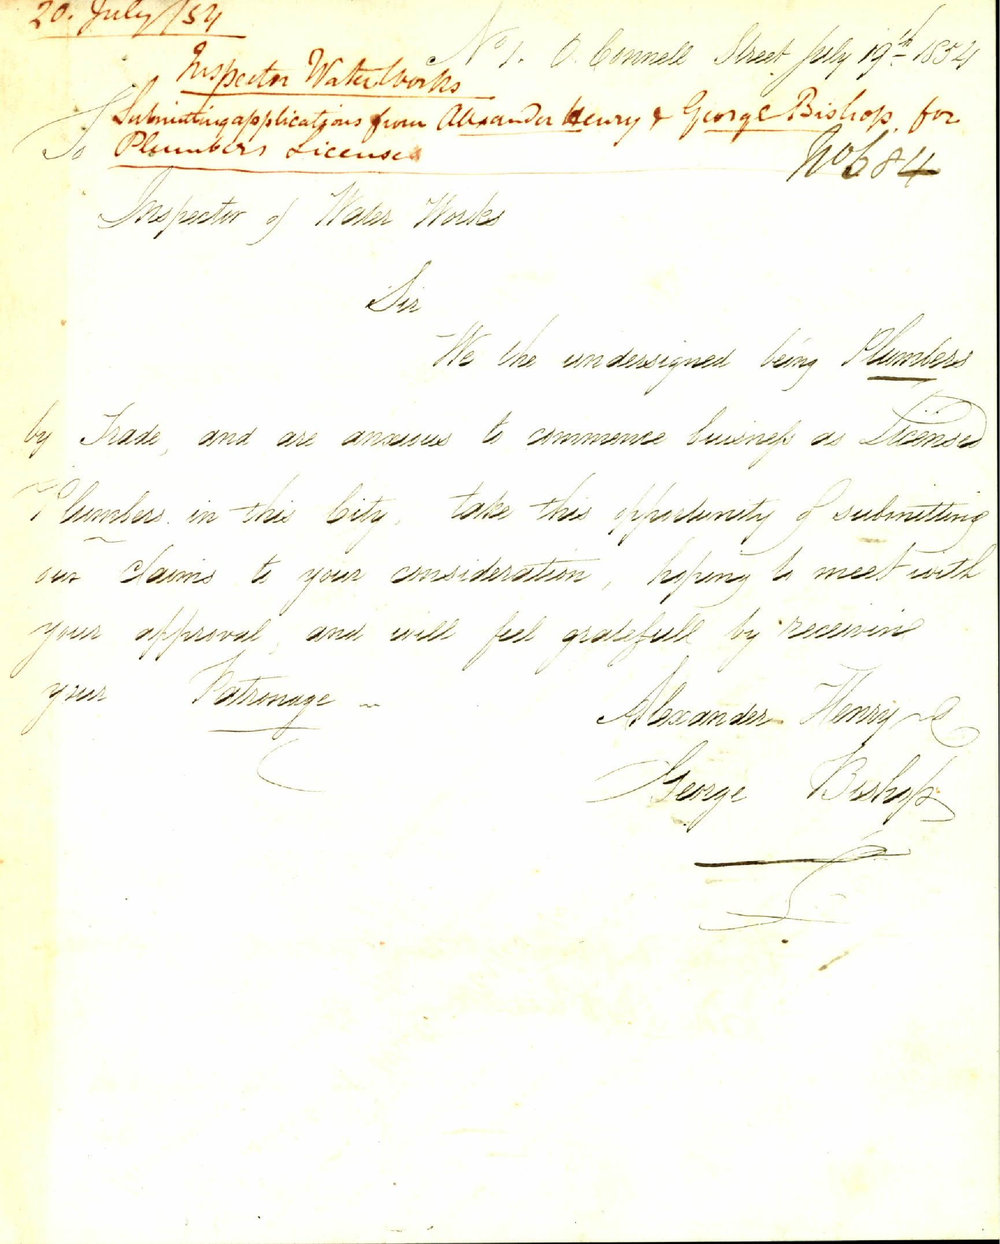 20. July/54
No 1. O. Connell Street July 19th 1854
Inspector Waterworks
Submitting applications from Alexander Henry & George Bishop, for
To Plumbers Licenses
No 684
Inspector of Water Works
Sir
We the undersigned being Plumbers
by Trade, and are anxious to commence business as Licensed
Plumbers in this City, take this opportunity of submitting
our claims to your consideration, hoping to meet with
your approval, and will feel gratefull by receiving
your Patronage
Alexander Henry
George Bishop